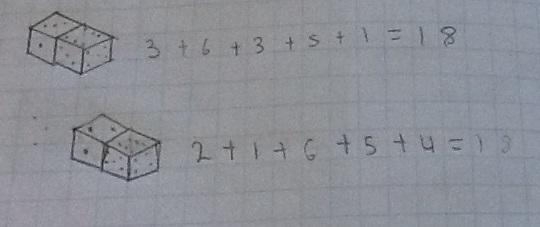 3 + 6 + 3 + 5 + 1 = 18
2 + 1 + 6 + 5 + 4 = 18